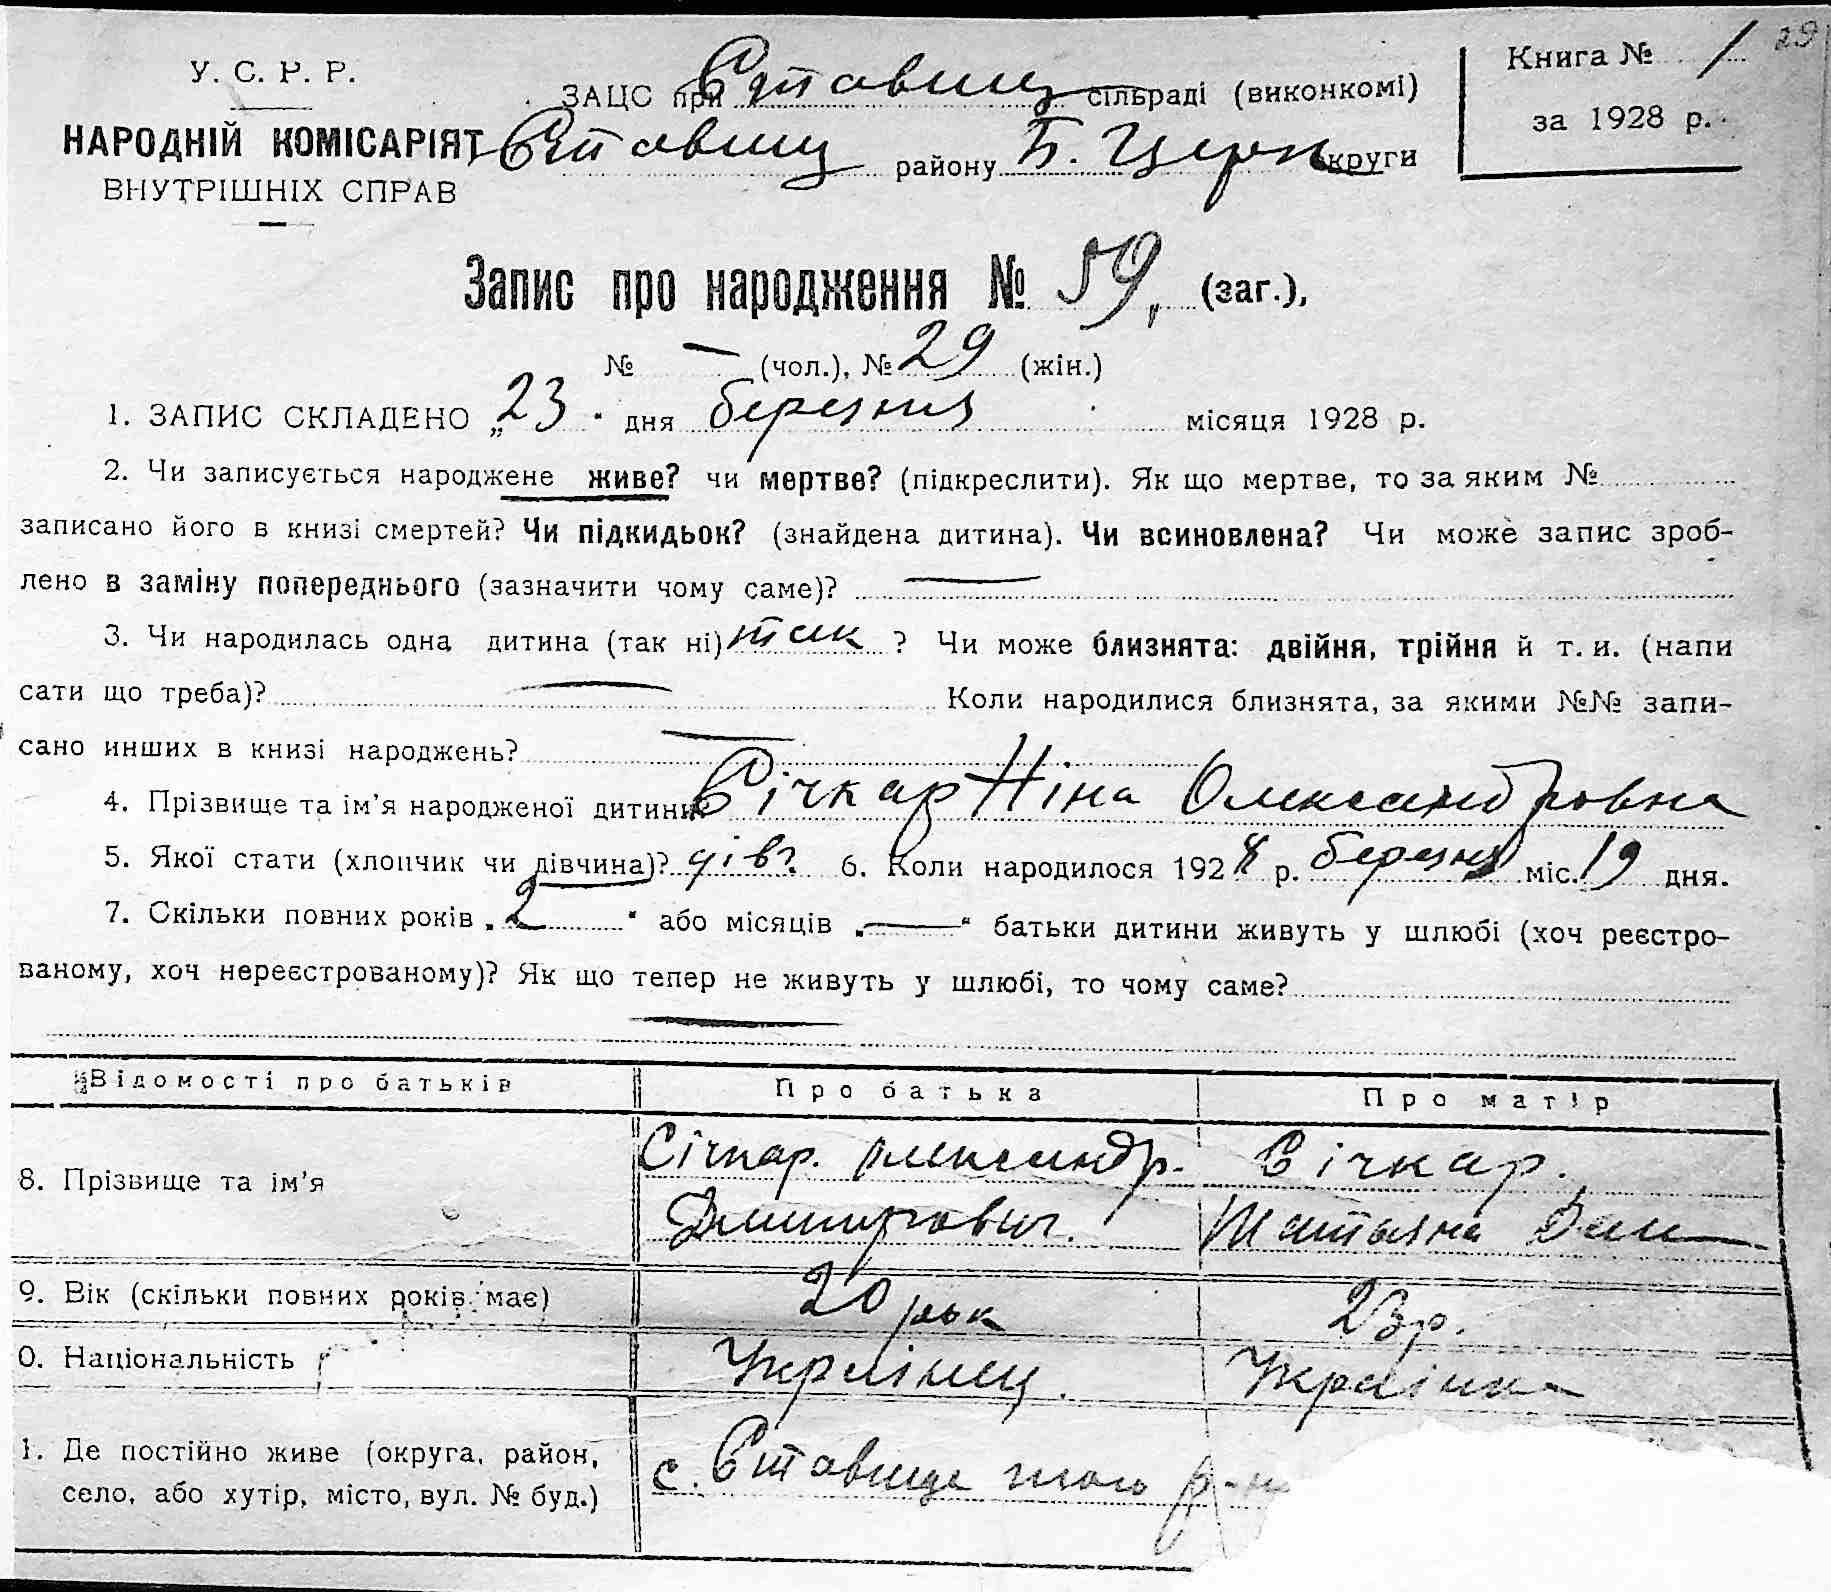 29
У. С. Р. Р.
НАРОДНІЙ КОМІСАРІЯТ
ВНУТРІШНІХ СПРАВ
ЗАЦС при Ставищ сільраді (виконкомі)
Ставищ району Б. Церк округи
Книга № 1
за 1928 р.
Запис про народження № 59, (заг.),
№ — (чол.), № 29 (жін.)
1. ЗАПИС СКЛАДЕНО „23" дня березня місяця 1928 р.
2. Чи записується народжене живе? чи мертве? (підкреслити). Як що мертве, то за яким №
записано його в книзі смертей? Чи підкидьок? (знайдена дитина). Чи всиновлена? Чи може запис зроб-
лено в заміну попереднього (зазначити чому саме)? —
3. Чи народилась одна дитина (так ні) так ? Чи може близнята: двійня, трійня й т. и. (напи
сати що треба)? — Коли народилися близнята, за якими №№ запи-
сано инших в книзі народжень? —
4. Прізвище та ім'я народженої дитини Січкар Ніна Олександровна
5. Якої стати (хлопчик чи дівчина)? дівч. 6. Коли народилося 1928 р. березня міс. 19 дня.
7. Скільки повних років „2" або місяців „—" батьки дитини живуть у шлюбі (хоч реєстро-
ваному, хоч нереєстрованому)? Як що тепер не живуть у шлюбі, то чому саме?
—
Відомості про батьків Про батька Про матір
8. Прізвище та ім'я Січкар. Олександр. Січкар.
Дмитрович. Татьяна Дем—
9. Вік (скільки повних років має) 20 рок 23 р.
0. Національність Українец. Українка
1. Де постійно живе (округа, район,
село, або хутір, місто, вул. № буд.) с. Ставище того р-ну